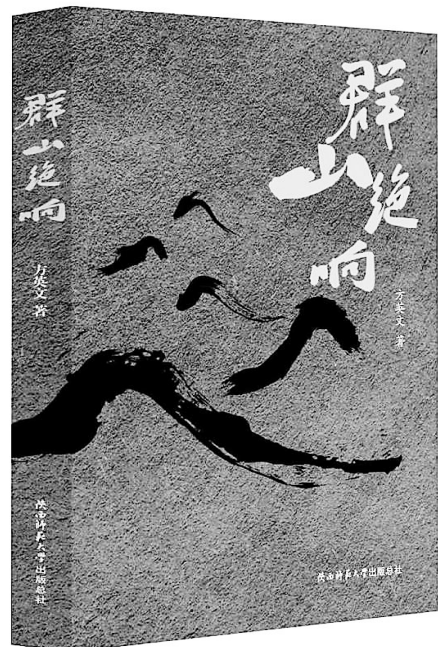 群山绝响
方英文 著
陕西师范大学出版总社
群山绝响
方英文 著
陕西师范大学出版总社